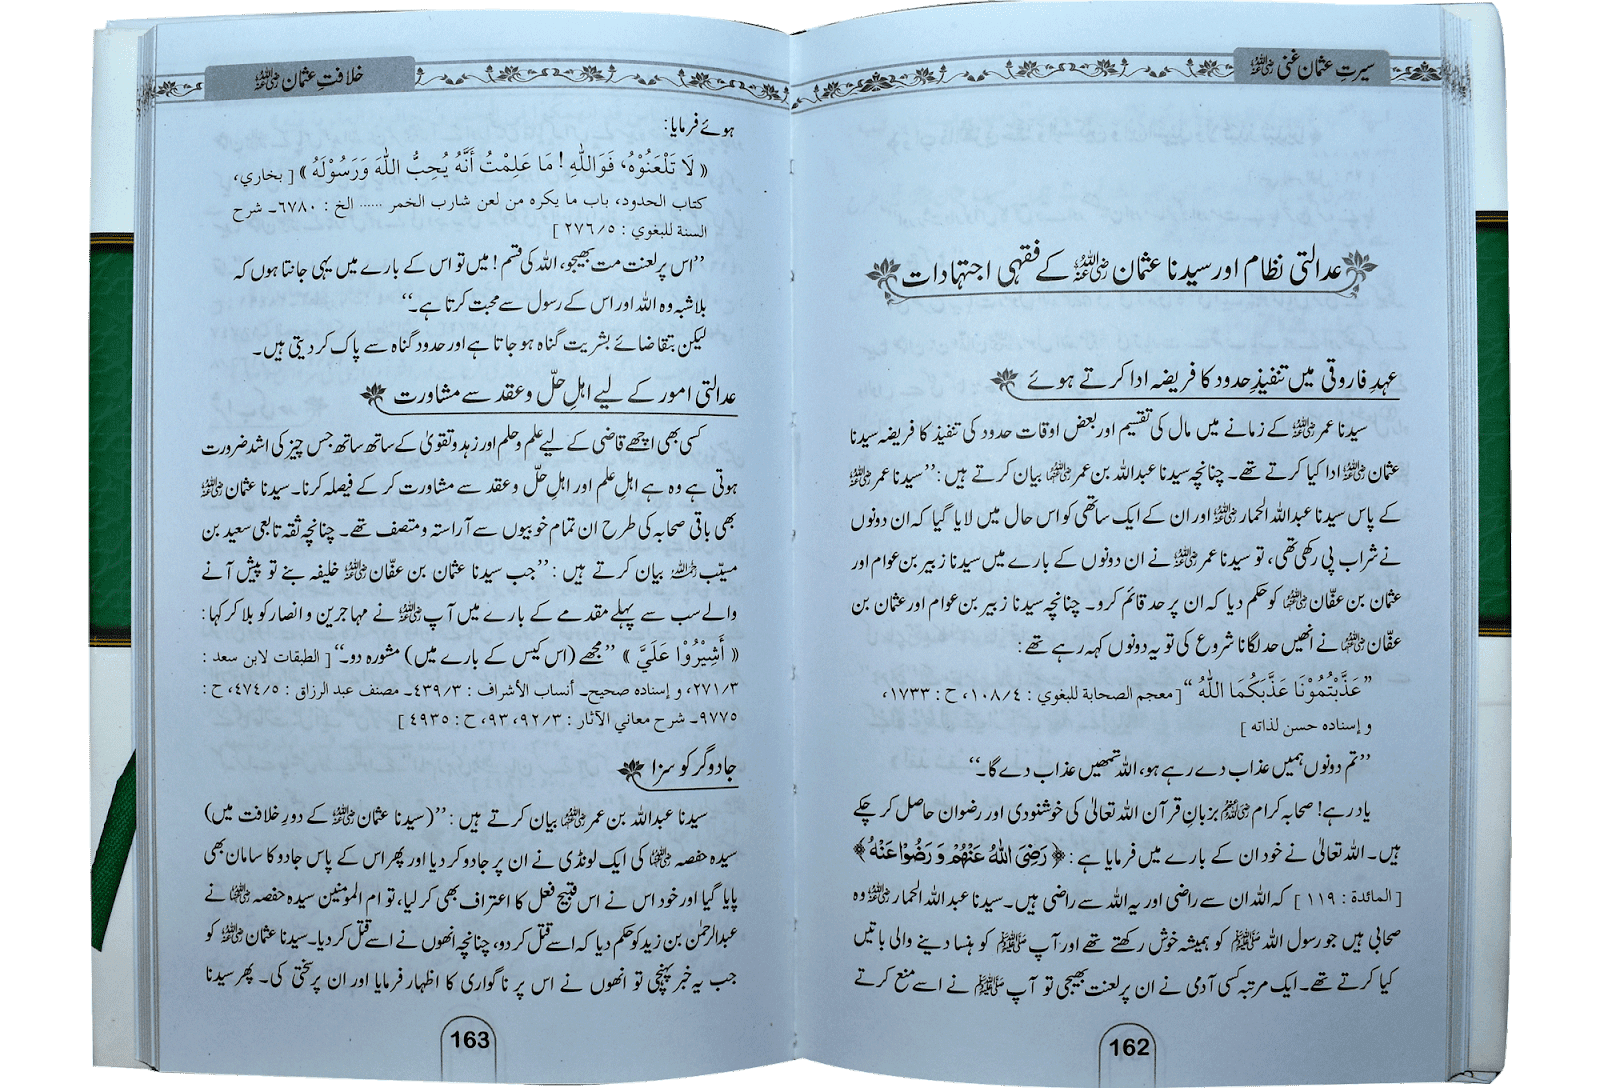 سیرتِ عثمان غنی رضی اللہ عنہ
عدالتی نظام اور سیدنا عثمان رضی اللہ عنہ کے فقہی اجتہادات
عہدِ فاروقی میں تنفیذِ حدود کا فریضہ ادا کرتے ہوئے
سیدنا عمر رضی اللہ عنہ کے زمانے میں مال کی تقسیم اور بعض اوقات حدود کی تنفیذ کا فریضہ سیدنا
عثمان رضی اللہ عنہ ادا کیا کرتے تھے۔ چنانچہ سیدنا عبداللہ بن عمر رضی اللہ عنہما بیان کرتے ہیں: ’’سیدنا عمر رضی اللہ عنہ
کے پاس سیدنا عبداللہ الحمار رضی اللہ عنہ اور ان کے ایک ساتھی کو اس حال میں لایا گیا کہ ان دونوں
نے شراب پی رکھی تھی، تو سیدنا عمر رضی اللہ عنہ نے ان دونوں کے بارے میں سیدنا زبیر بن عوام اور
عثمان بن عفّان رضی اللہ عنہما کو حکم دیا کہ ان پر حد قائم کرو۔ چنانچہ سیدنا زبیر بن عوام اور عثمان بن
عفّان رضی اللہ عنہما نے انھیں حد لگانا شروع کی تو یہ دونوں کہہ رہے تھے:
’’عَذَّبْتُمُوْنَا عَذَّبَكُمَا اللّٰهُ‘‘ [معجم الصحابة للبغوي : ١٠٨/٤، ح : ١٧٣٣،
و إسناده حسن لذاته ]
’’تم دونوں ہمیں عذاب دے رہے ہو، اللہ تمھیں عذاب دے گا۔‘‘
یاد رہے! صحابہ کرام رضی اللہ عنہم بزبانِ قرآن اللہ تعالیٰ کی خوشنودی اور رضوان حاصل کر چکے
ہیں۔ اللہ تعالیٰ نے خود ان کے بارے میں فرمایا ہے: ﴿ رَضِيَ اللّٰهُ عَنْهُمْ وَ رَضُوْا عَنْهُ ﴾
[ المائدة : ١١٩ ] کہ اللہ ان سے راضی اور یہ اللہ سے راضی ہیں۔ سیدنا عبداللہ الحمار رضی اللہ عنہ وہ
صحابی ہیں جو رسول اللہ ﷺ کو ہمیشہ خوش رکھتے تھے اور آپ ﷺ کو ہنسا دینے والی باتیں
کیا کرتے تھے۔ ایک مرتبہ کسی آدمی نے ان پر لعنت بھیجی تو آپ ﷺ نے اسے منع کرتے
162
خلافتِ عثمان رضی اللہ عنہ
ہوئے فرمایا:
« لَا تَلْعَنُوْهُ، فَوَاللّٰهِ ! مَا عَلِمْتُ أَنَّهُ يُحِبُّ اللّٰهَ وَرَسُوْلَهُ » [ بخاري،
كتاب الحدود، باب ما يكره من لعن شارب الخمر ...... الخ : ٦٧٨٠۔ شرح
السنة للبغوي : ٢٧٦/٥ ]
’’اس پر لعنت مت بھیجو، اللہ کی قسم! میں تو اس کے بارے میں یہی جانتا ہوں کہ
بلاشبہ وہ اللہ اور اس کے رسول سے محبت کرتا ہے۔‘‘
لیکن بتقاضائے بشریت گناہ ہو جاتا ہے اور حدود گناہ سے پاک کر دیتی ہیں۔
عدالتی امور کے لیے اہلِ حلّ و عقد سے مشاورت
کسی بھی اچھے قاضی کے لیے علم و حلم اور زہد و تقویٰ کے ساتھ ساتھ جس چیز کی اشد ضرورت
ہوتی ہے وہ ہے اہلِ علم اور اہلِ حلّ و عقد سے مشاورت کر کے فیصلہ کرنا۔ سیدنا عثمان رضی اللہ عنہ
بھی باقی صحابہ کی طرح ان تمام خوبیوں سے آراستہ و متصف تھے۔ چنانچہ ثقہ تابعی سعید بن
مسیّب رحمہ اللہ بیان کرتے ہیں: ’’جب سیدنا عثمان بن عفّان رضی اللہ عنہ خلیفہ بنے تو پیش آنے
والے سب سے پہلے مقدمے کے بارے میں آپ رضی اللہ عنہ نے مہاجرین و انصار کو بلا کر کہا:
« أَشِيْرُوْا عَلَيَّ » ’’مجھے (اس کیس کے بارے میں) مشورہ دو۔‘‘ [ الطبقات لابن سعد :
٢٧١/٣، و إسناده صحيح۔ أنساب الأشراف : ٤٣٩/٣۔ مصنف عبد الرزاق : ٤٧٤/٥، ح :
٩٧٧٥۔ شرح معاني الآثار : ٩٢/٣، ٩٣، ح : ٤٩٣٥ ]
جادوگر کو سزا
سیدنا عبداللہ بن عمر رضی اللہ عنہما بیان کرتے ہیں: ’’(سیدنا عثمان رضی اللہ عنہ کے دورِ خلافت میں)
سیدہ حفصہ رضی اللہ عنہا کی ایک لونڈی نے ان پر جادو کر دیا اور پھر اس کے پاس جادو کا سامان بھی
پایا گیا اور خود اس نے اس قبیح فعل کا اعتراف بھی کر لیا، تو ام المومنین سیدہ حفصہ رضی اللہ عنہا نے
عبدالرحمٰن بن زید کو حکم دیا کہ اسے قتل کر دو، چنانچہ انھوں نے اسے قتل کر دیا۔ سیدنا عثمان رضی اللہ عنہ کو
جب یہ خبر پہنچی تو انھوں نے اس پر ناگواری کا اظہار فرمایا اور ان پر سختی کی۔ پھر سیدنا
163